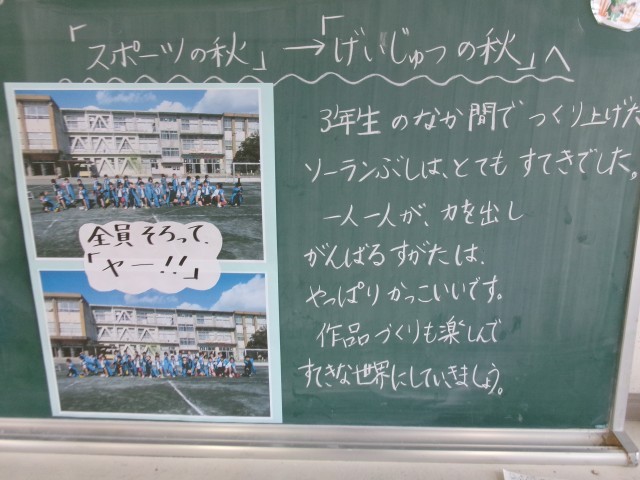 「スポーツの秋」→「げいじゅつの秋」へ
3年生のなか間でつくり上げた
ソーランぶしは、とてもすてきでした。
一人一人が、力を出し
がんばるすがたは、
やっぱりかっこいいです。
作品づくりも楽しんで
すてきな世界にしていきましょう。
全員そろって、
「ヤー!!!」